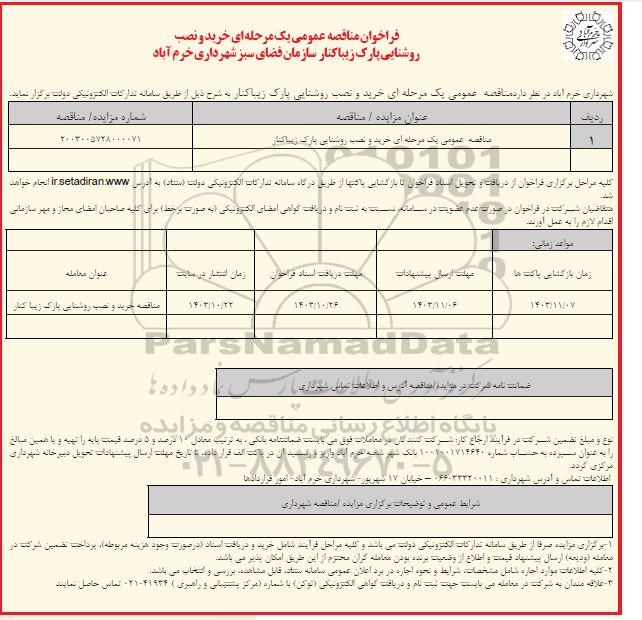 فراخوان مناقصه عمومی یک مرحله ای خرید و نصب
روشنایی پارک زیباکنار سازمان فضای سبز شهرداری خرم آباد
شهرداری خرم آباد در نظر دارد مناقصه عمومی یک مرحله ای خرید و نصب روشنایی پارک زیباکنار به شرح ذیل از طریق سامانه تدارکات الکترونیکی دولت برگزار نماید.
ردیف عنوان مزایده / مناقصه شماره مزایده/ مناقصه
۱ مناقصه عمومی یک مرحله ای خرید و نصب روشنایی پارک زیباکنار ۲۰۰۳۰۰۵۷۲۸۰۰۰۰۷۱
کلیه مراحل برگزاری فراخوان از دریافت و تحویل اسناد فراخوان تا بازگشایی پاکتها از طریق درگاه سامانه تدارکات الکترونیکی دولت (ستاد) به آدرس ir.setadiran.www انجام خواهد
شد.
متقاضیان شرکت در فراخوان در صورت عدم عضویت در سامانه، نسبت به ثبت نام و دریافت گواهی امضای الکترونیکی (به صورت برخط) برای کلیه صاحبان امضای مجاز و مهر سازمانی
اقدام لازم را به عمل آورند.
مواعد زمانی:
زمان بازگشایی پاکت ها مهلت ارسال پیشنهادات مهلت دریافت اسناد فراخوان زمان انتشار در سایت عنوان معامله
۱۴۰۳/۱۱/۰۷ ۱۴۰۳/۱۱/۰۶ ۱۴۰۳/۱۰/۲۶ ۱۴۰۳/۱۰/۲۲ مناقصه خرید و نصب روشنایی پارک زیبا کنار
ParsNamadData
ضمانت نامه شرکت در مزایده/مناقصه آدرس و اطلاعات تماس شهرداری
پایگاه اطلاع رسانی مناقصه و مزایده
نوع و مبلغ تضمین شرکت در فرآیند ارجاع کار: شرکت کنندگان در معاملات فوق می بایست ضمانتنامه بانکی ، به ترتیب معادل ۱۰ درصد و ۵ درصد قیمت پایه را تهیه و یا همین مبالغ
را به عنوان سپرده به حساب شماره ۱۰۰۱۰۰۱۷۱۴۶۴۰ بانک شهر شعبه خرم آباد واریز و رسید آن در پاکت الف قرار داده، تا تاریخ مهلت ارسال پیشنهادات تحویل دبیرخانه شهرداری
مرکزی گردد.
۰۲۱-۸۸۳۴۹۶۷۰-۵
اطلاعات تماس و آدرس شهرداری : ۳۳۲۲۰۰۱۱-۰۶۶ – خیابان ۱۷ شهریور- شهرداری خرم آباد- امور قراردادها
شرایط عمومی و توضیحات برگزاری مزایده /مناقصه شهرداری
۱-برگزاری مزایده صرفا از طریق سامانه تدارکات الکترونیکی دولت می باشد و کلیه مراحل فرآیند شامل خرید و دریافت اسناد (درصورت وجود هزینه مربوطه)، پرداخت تضمین شرکت در
معامله (ودیعه) ارسال پیشنهاد قیمت و اطلاع از وضعیت برنده بودن معامله گران محترم از این طریق امکان پذیر می باشد.
۲-کلیه اطلاعات موارد اجاره شامل مشخصات، شرایط و نحوه اجاره در برد اعلان عمومی سامانه ستاد، قابل مشاهده، بررسی و انتخاب می باشد.
۳-علاقه مندان به شرکت در معامله می بایست جهت ثبت نام و دریافت گواهی الکترونیکی (توکن) با شماره (مرکز پشتیبانی و راهبری ) ۴۱۹۳۴-۰۲۱ تماس حاصل نمایند